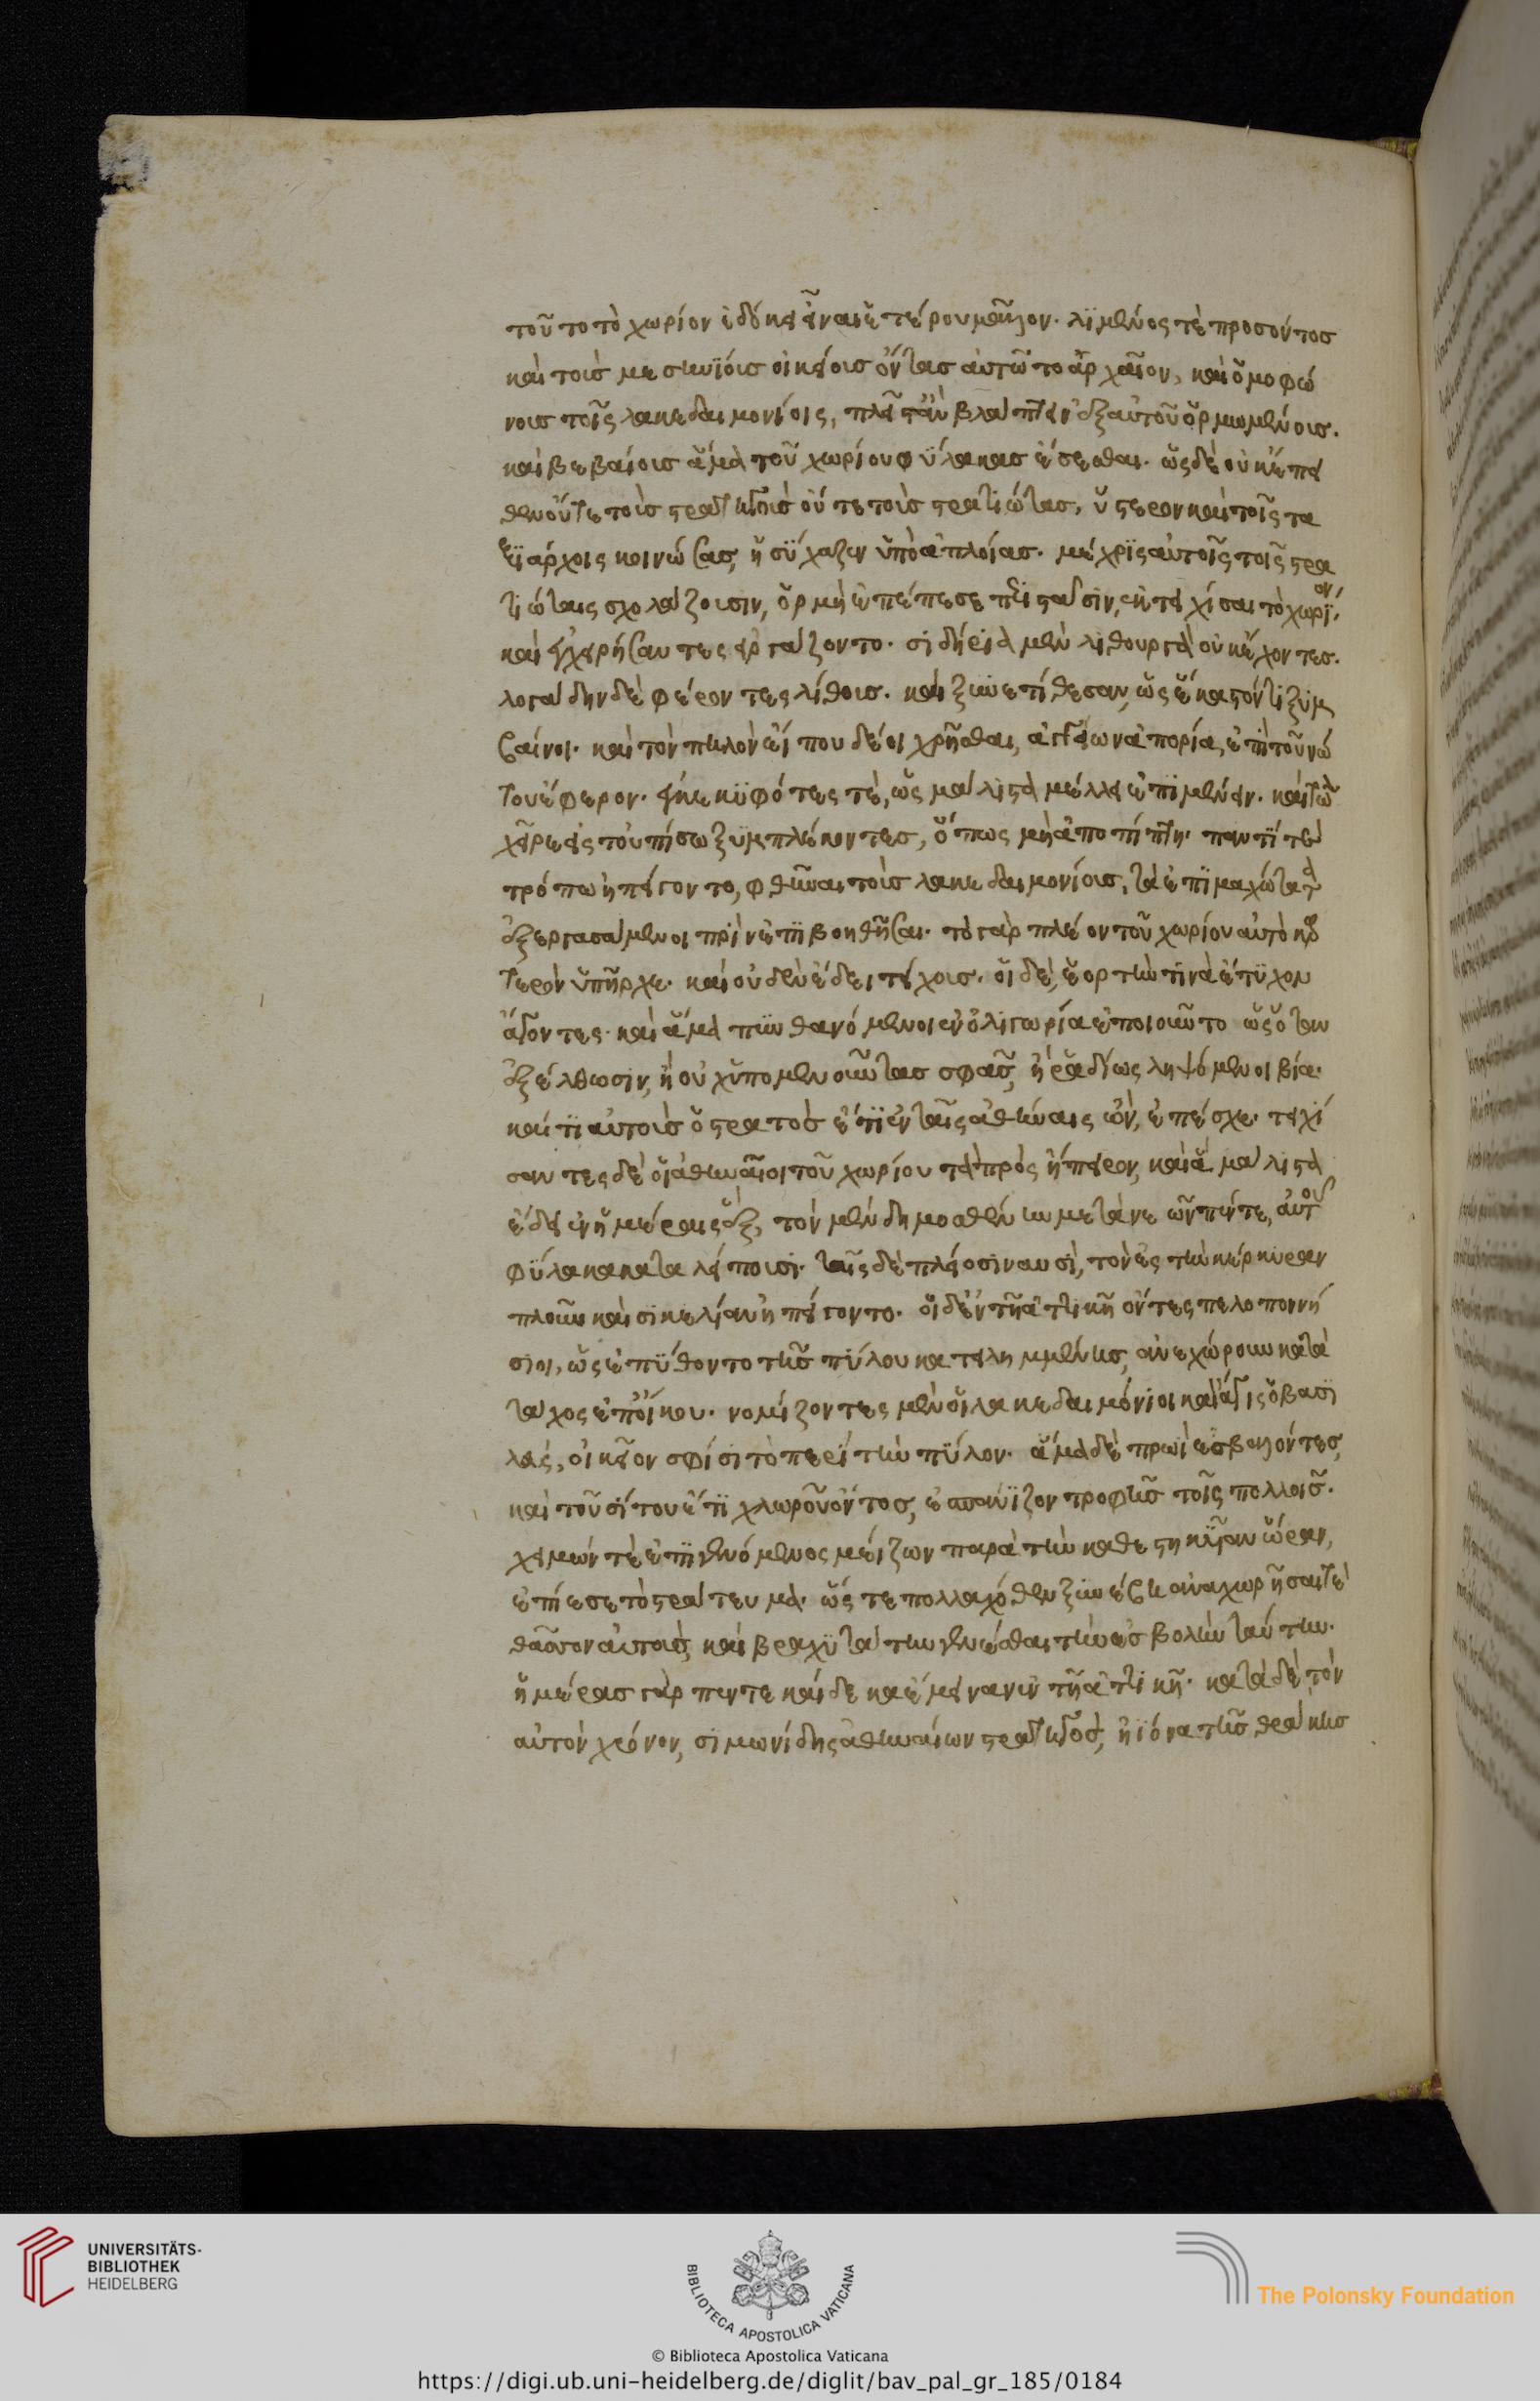 τοῦτο τὸ χωρίον ἐδόκει εἶναι ἑτέρου μᾶλλον. λϊμένος τὲ προσόντος
καὶ τοὺς μεσσηνίους οἰκείους ὄντας αὐτῶ τὸ ἀρχαῖον, καὶ ὁμοφώ
νους τοῖς λακεδαιμονίοις, πλεῖστ' ἂν βλάπτειν ἐξ αὐτοῦ ὁρμωμένους.
καὶ βεβαίους ἅμα τοῦ χωρίου φύλακας ἔσεσθαι. ὡς δὲ οὐκ ἔπει
θεν οὔτε τοὺς στρατηγοὺς οὔτε τοὺς στρατιώτας, ὕστερον καὶ τοῖς τα
ξιάρχοις κοινώσας, ἡσύχαζεν ὑπὸ ἀπλοίας. μέχρις αὐτοῖς τοῖς στρα
τιώταις σχολάζουσιν, ὁρμὴ ἐπέπεσε περιστᾶσιν, ἐκτειχίσαι τὸ χωρίον.
καὶ ἐγχειρήσαντες εἰργάζοντο. σιδήρια μὲν λιθουργὰ οὐκ ἔχοντες.
λογάδην δὲ φέροντες λίθους. καὶ ξυνετίθεσαν, ὡς ἕκαστόν τι ξυμ
βαίνοι. καὶ τὸν πηλὸν εἴ που δέοι χρῆσθαι, ἀγγείων ἀπορία, ἐπὶ τοῦ νώ
του ἔφερον. ἐγκεκυφότες τὲ, ὡς μάλιστα μέλλει ἐπιμένειν. καὶ τὼ
χεῖρε ἐς τοὐπίσω ξυμπλέκοντες, ὅπως μὴ ἀποπίπτη. παντί τε
τρόπω ἠπείγοντο, φθῆναι τοὺς λακεδαιμονίους, τὰ ἐπιμαχώτατα
ἐξεργασάμενοι πρὶν ἐπιβοηθῆσαι. τὸ γὰρ πλέον τοῦ χωρίου αὐτὸ καρ
τερὸν ὑπῆρχε. καὶ οὐδὲν ἔδει τείχους. οἱ δὲ, ἑορτήν τινα ἔτυχον
ἄγοντες. καὶ ἅμα πυνθανόμενοι ἐν ὀλιγωρία ἐποιοῦντο ὡς ὅταν
ἐξέλθωσιν, ἢ οὐχ ὑπομενοῦντας σφᾶς, ἢ ῥᾳδίως ληψόμενοι βία.
καί τι αὐτοὺς ὁ στρατὸς ἔτι ἐν ταῖς ἀθήναις ὢν, ἐπέσχε. τειχί
σαντες δὲ οἱ ἀθηναῖοι τοῦ χωρίου τὰ πρὸς ἤπειρον, καὶ ἃ μάλιστα
ἔδει ἐν ἡμέραις ἓξ, τὸν μὲν δημοσθένην μετὰ νεῶν πέντε, αὐτοῦ
φύλακα καταλείπουσι. ταῖς δὲ πλείοσι ναυσὶ, τὸν ἐς τὴν κέρκυραν
πλοῦν καὶ σικελίαν ἠπείγοντο. οἱ δ' ἐν τῆ ἀττικῆ ὄντες πελοποννή
σιοι, ὡς ἐπύθοντο τῆς πύλου κατειλημμένης, ἀνεχώρουν κατὰ
τάχος ἐπ' οἴκου. νομίζοντες μὲν οἱ λακεδαιμόνιοι καὶ ἆγις ὁ βασι
λεὺς, οἰκεῖον σφίσι τὸ περὶ τὴν πύλον. ἅμα δὲ πρωῒ ἐσβαλόντες,
καὶ τοῦ σίτου ἔτι χλωροῦ ὄντος, ἐσπάνιζον τροφῆς τοῖς πολλοῖς.
χειμών τὲ ἐπιγενόμενος μείζων παρὰ τὴν καθεστηκυῖαν ὥραν,
ἐπίεσε τὸ στράτευμα. ὥστε πολλαχόθεν ξυνέβη ἀναχωρῆσαί τὲ
θᾶσσον αὐτοὺς, καὶ βραχυτάτην γενέσθαι τὴν ἐσβολὴν ταύτην.
ἡμέρας γὰρ πεντεκαίδεκα ἔμειναν ἐν τῆ ἀττικῆ. κατὰ δὲ τὸν
αὐτὸν χρόνον, σιμωνίδης ἀθηναίων στρατηγὸς, ἠϊόνα τῆς θράκης
UNIVERSITÄTS-
BIBLIOTHEK
HEIDELBERG
BIBLIOTECA APOSTOLICA VATICANA
The Polonsky Foundation
© Biblioteca Apostolica Vaticana
https://digi.ub.uni-heidelberg.de/diglit/bav_pal_gr_185/0184